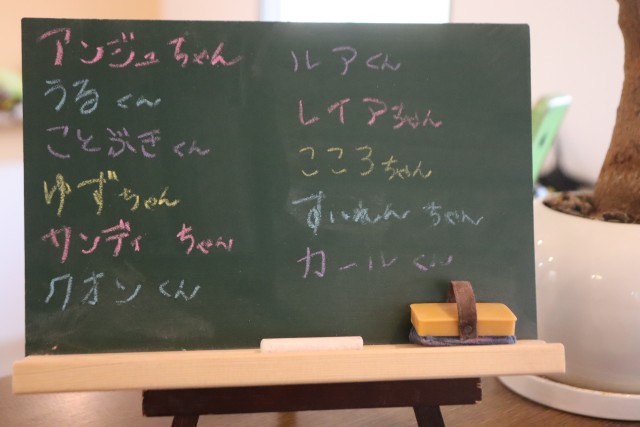 アンジュちゃん
うるくん
ことぶきくん
ゆずちゃん
サンディちゃん
クオンくん
ルアくん
レイアちゃん
こころちゃん
すいれんちゃん
カールくん